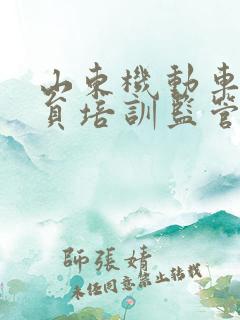 山東機動車
員培訓監管
師張婧
未经同意禁止转载